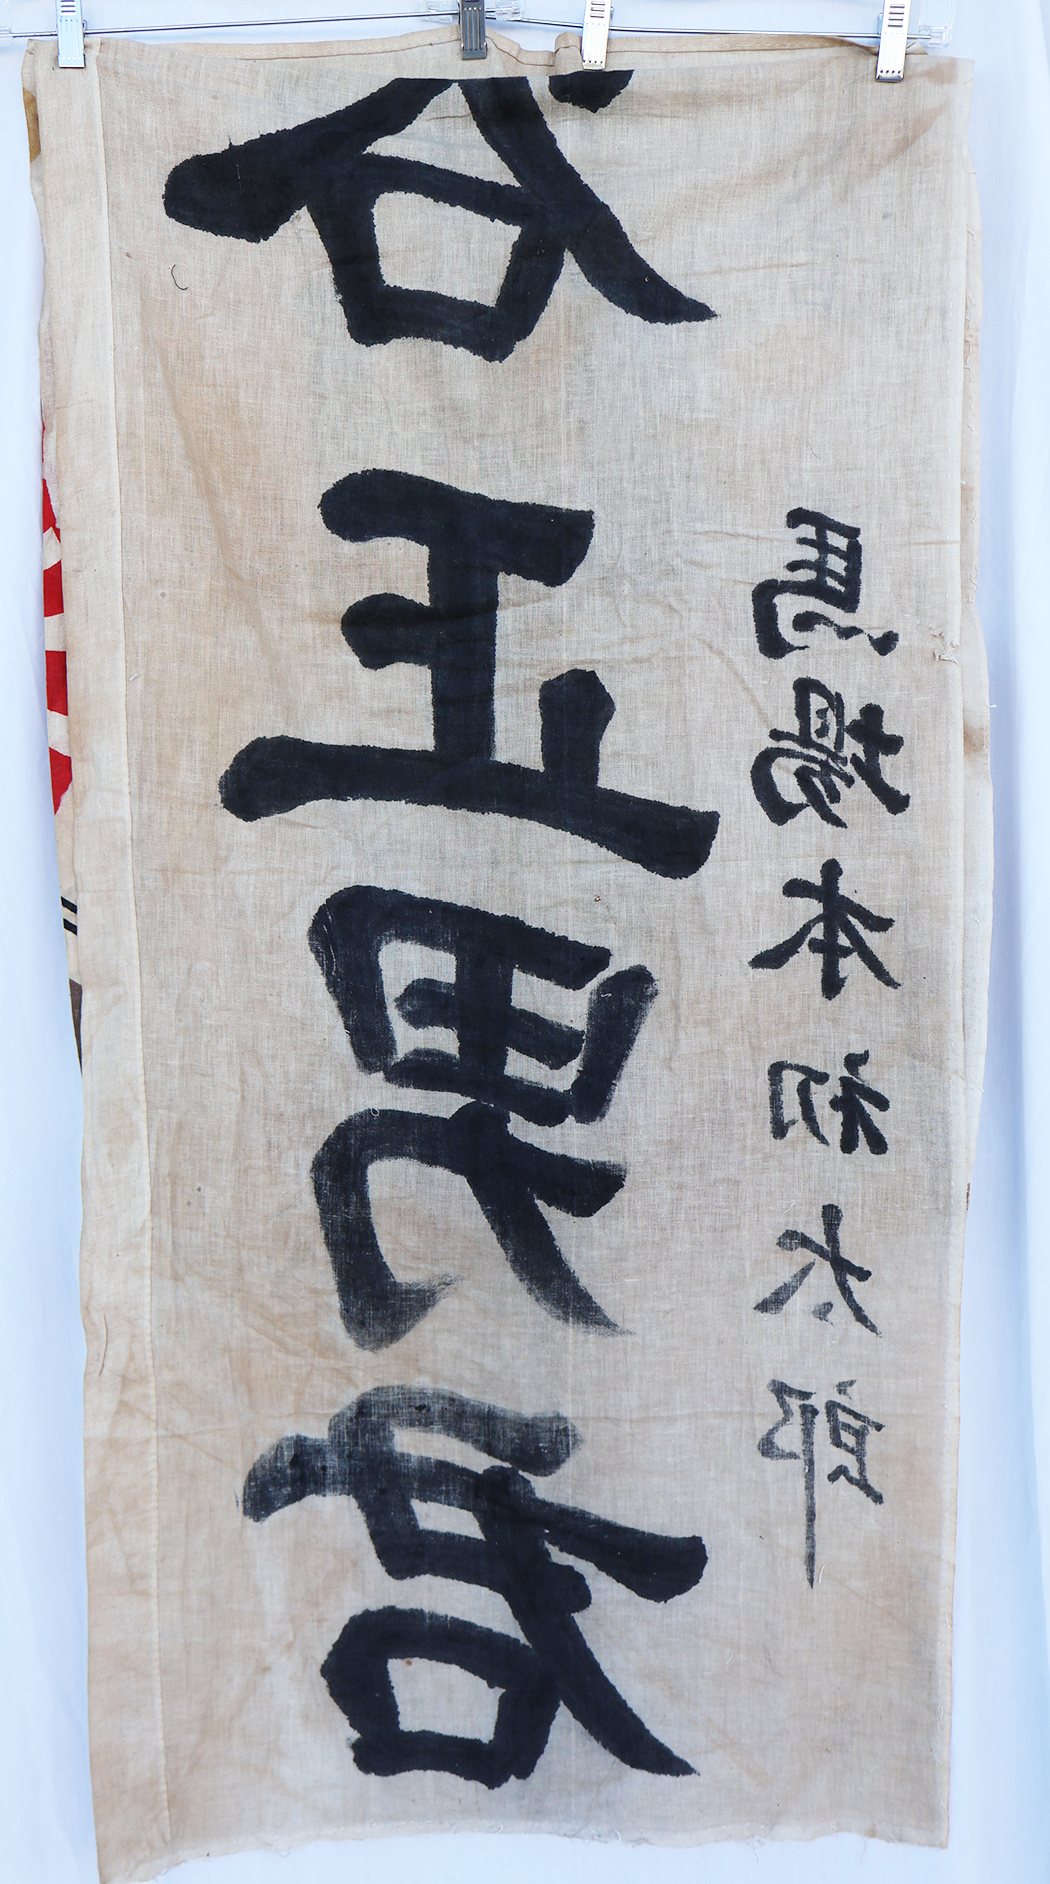 谷正男君
馬場本初太郎